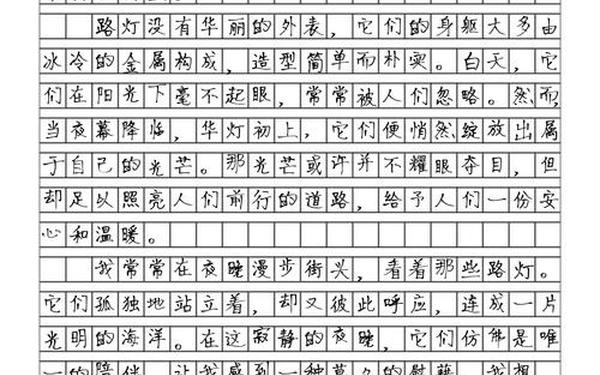 路灯没有华丽的外表，它们的身躯大多由
冰冷的金属构成，造型简单而朴实。白天，它
们在阳光下毫不起眼，常常被人们忽略。然而，
当夜幕降临，华灯初上，它们便悄然绽放出属
于自己的光芒。那光芒或许并不耀眼夺目，但
却足以照亮人们前行的道路，给予人们一份安
心和温暖。
我常常在夜晚漫步街头，看着那些路灯。
它们孤独地站立着，却又彼此呼应，连成一片
光明的海洋。在这寂静的夜晚，它们仿佛是唯
一的陪伴，让我感到一种莫名的慰藉。我想，